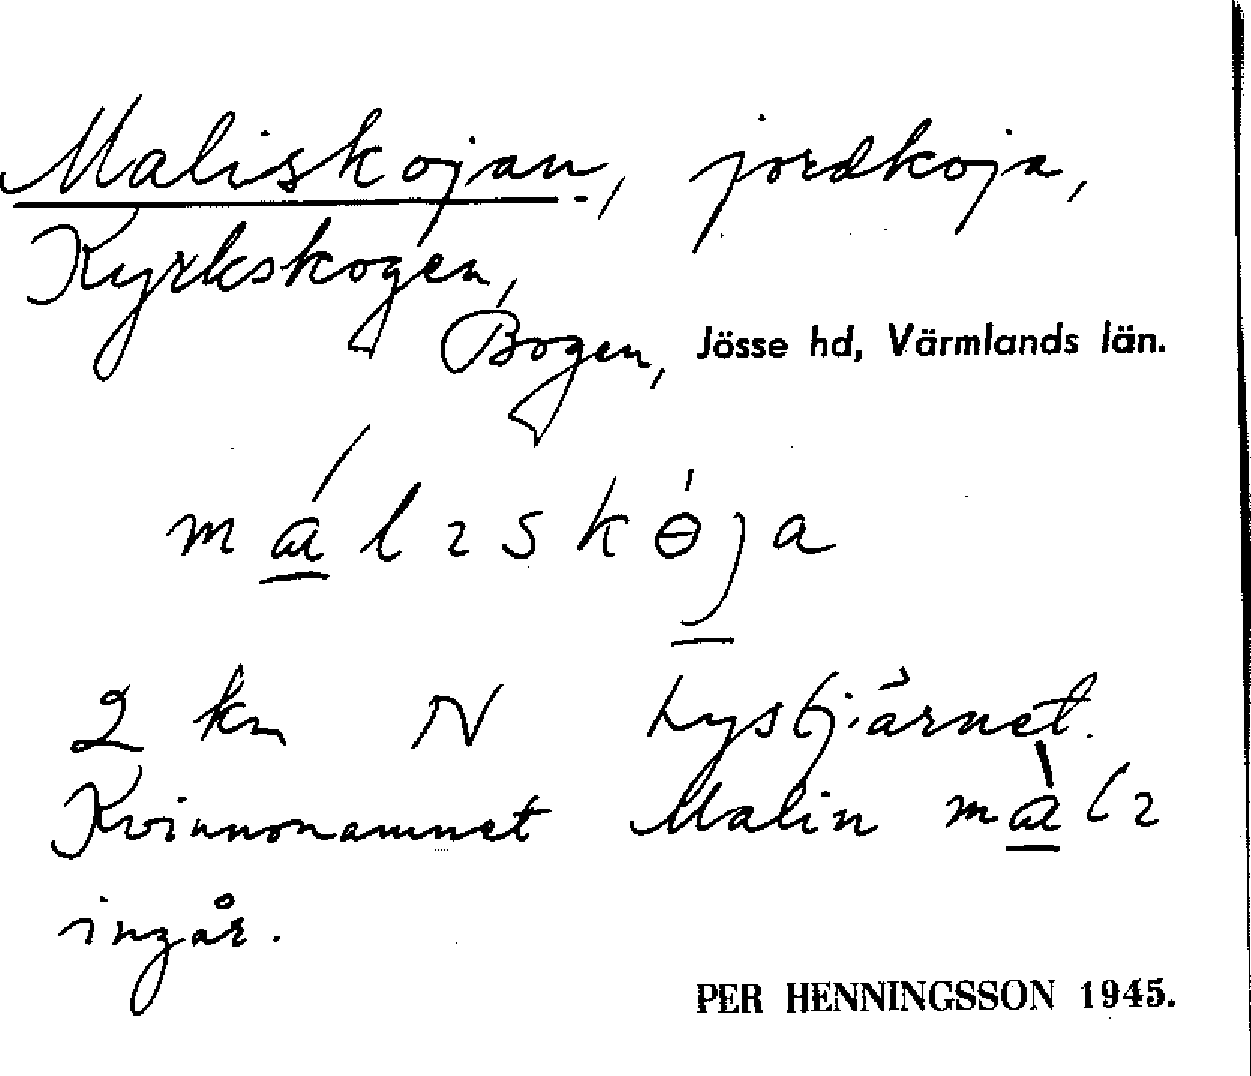 Maliskojan, jordkoja,
Kyrkskogen,
Bogen, Jösse hd, Värmlands län.
2 km N Lystjärnet.
Kvinnonamnet Malin
ingår.
PER HENNINGSSON 1945.